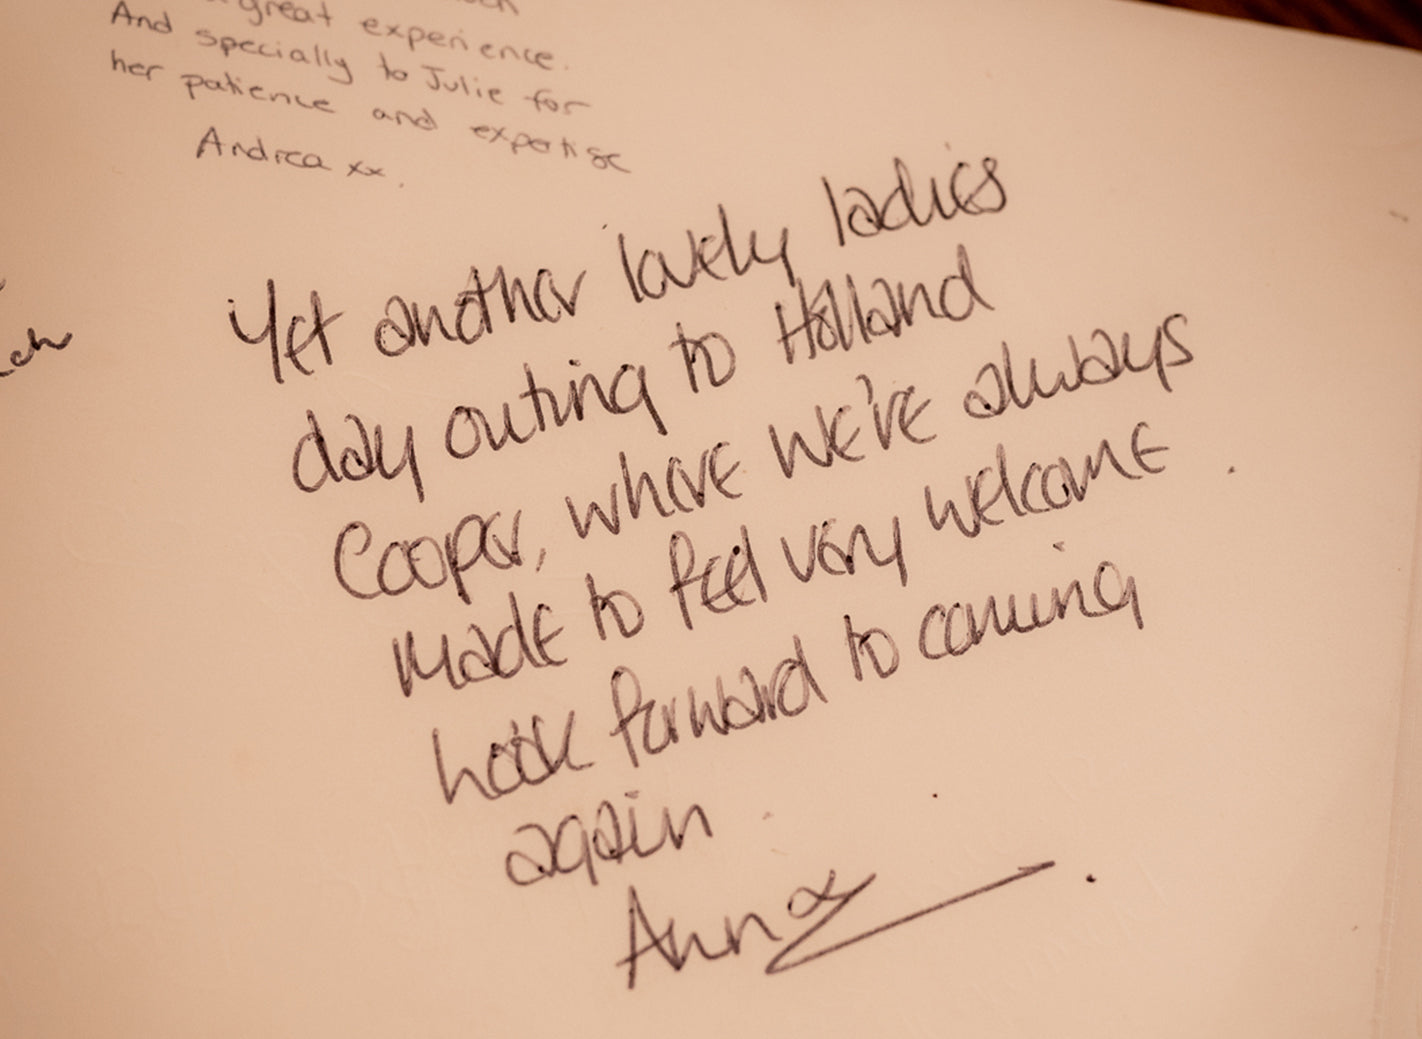 great experience.
And specially to Julie for
her patience and expertise
Andrea xx.
Yet another lovely ladies
day outing to Holland
Cooper, where we've always
made to feel very welcome.
Look forward to coming
again
Ann x